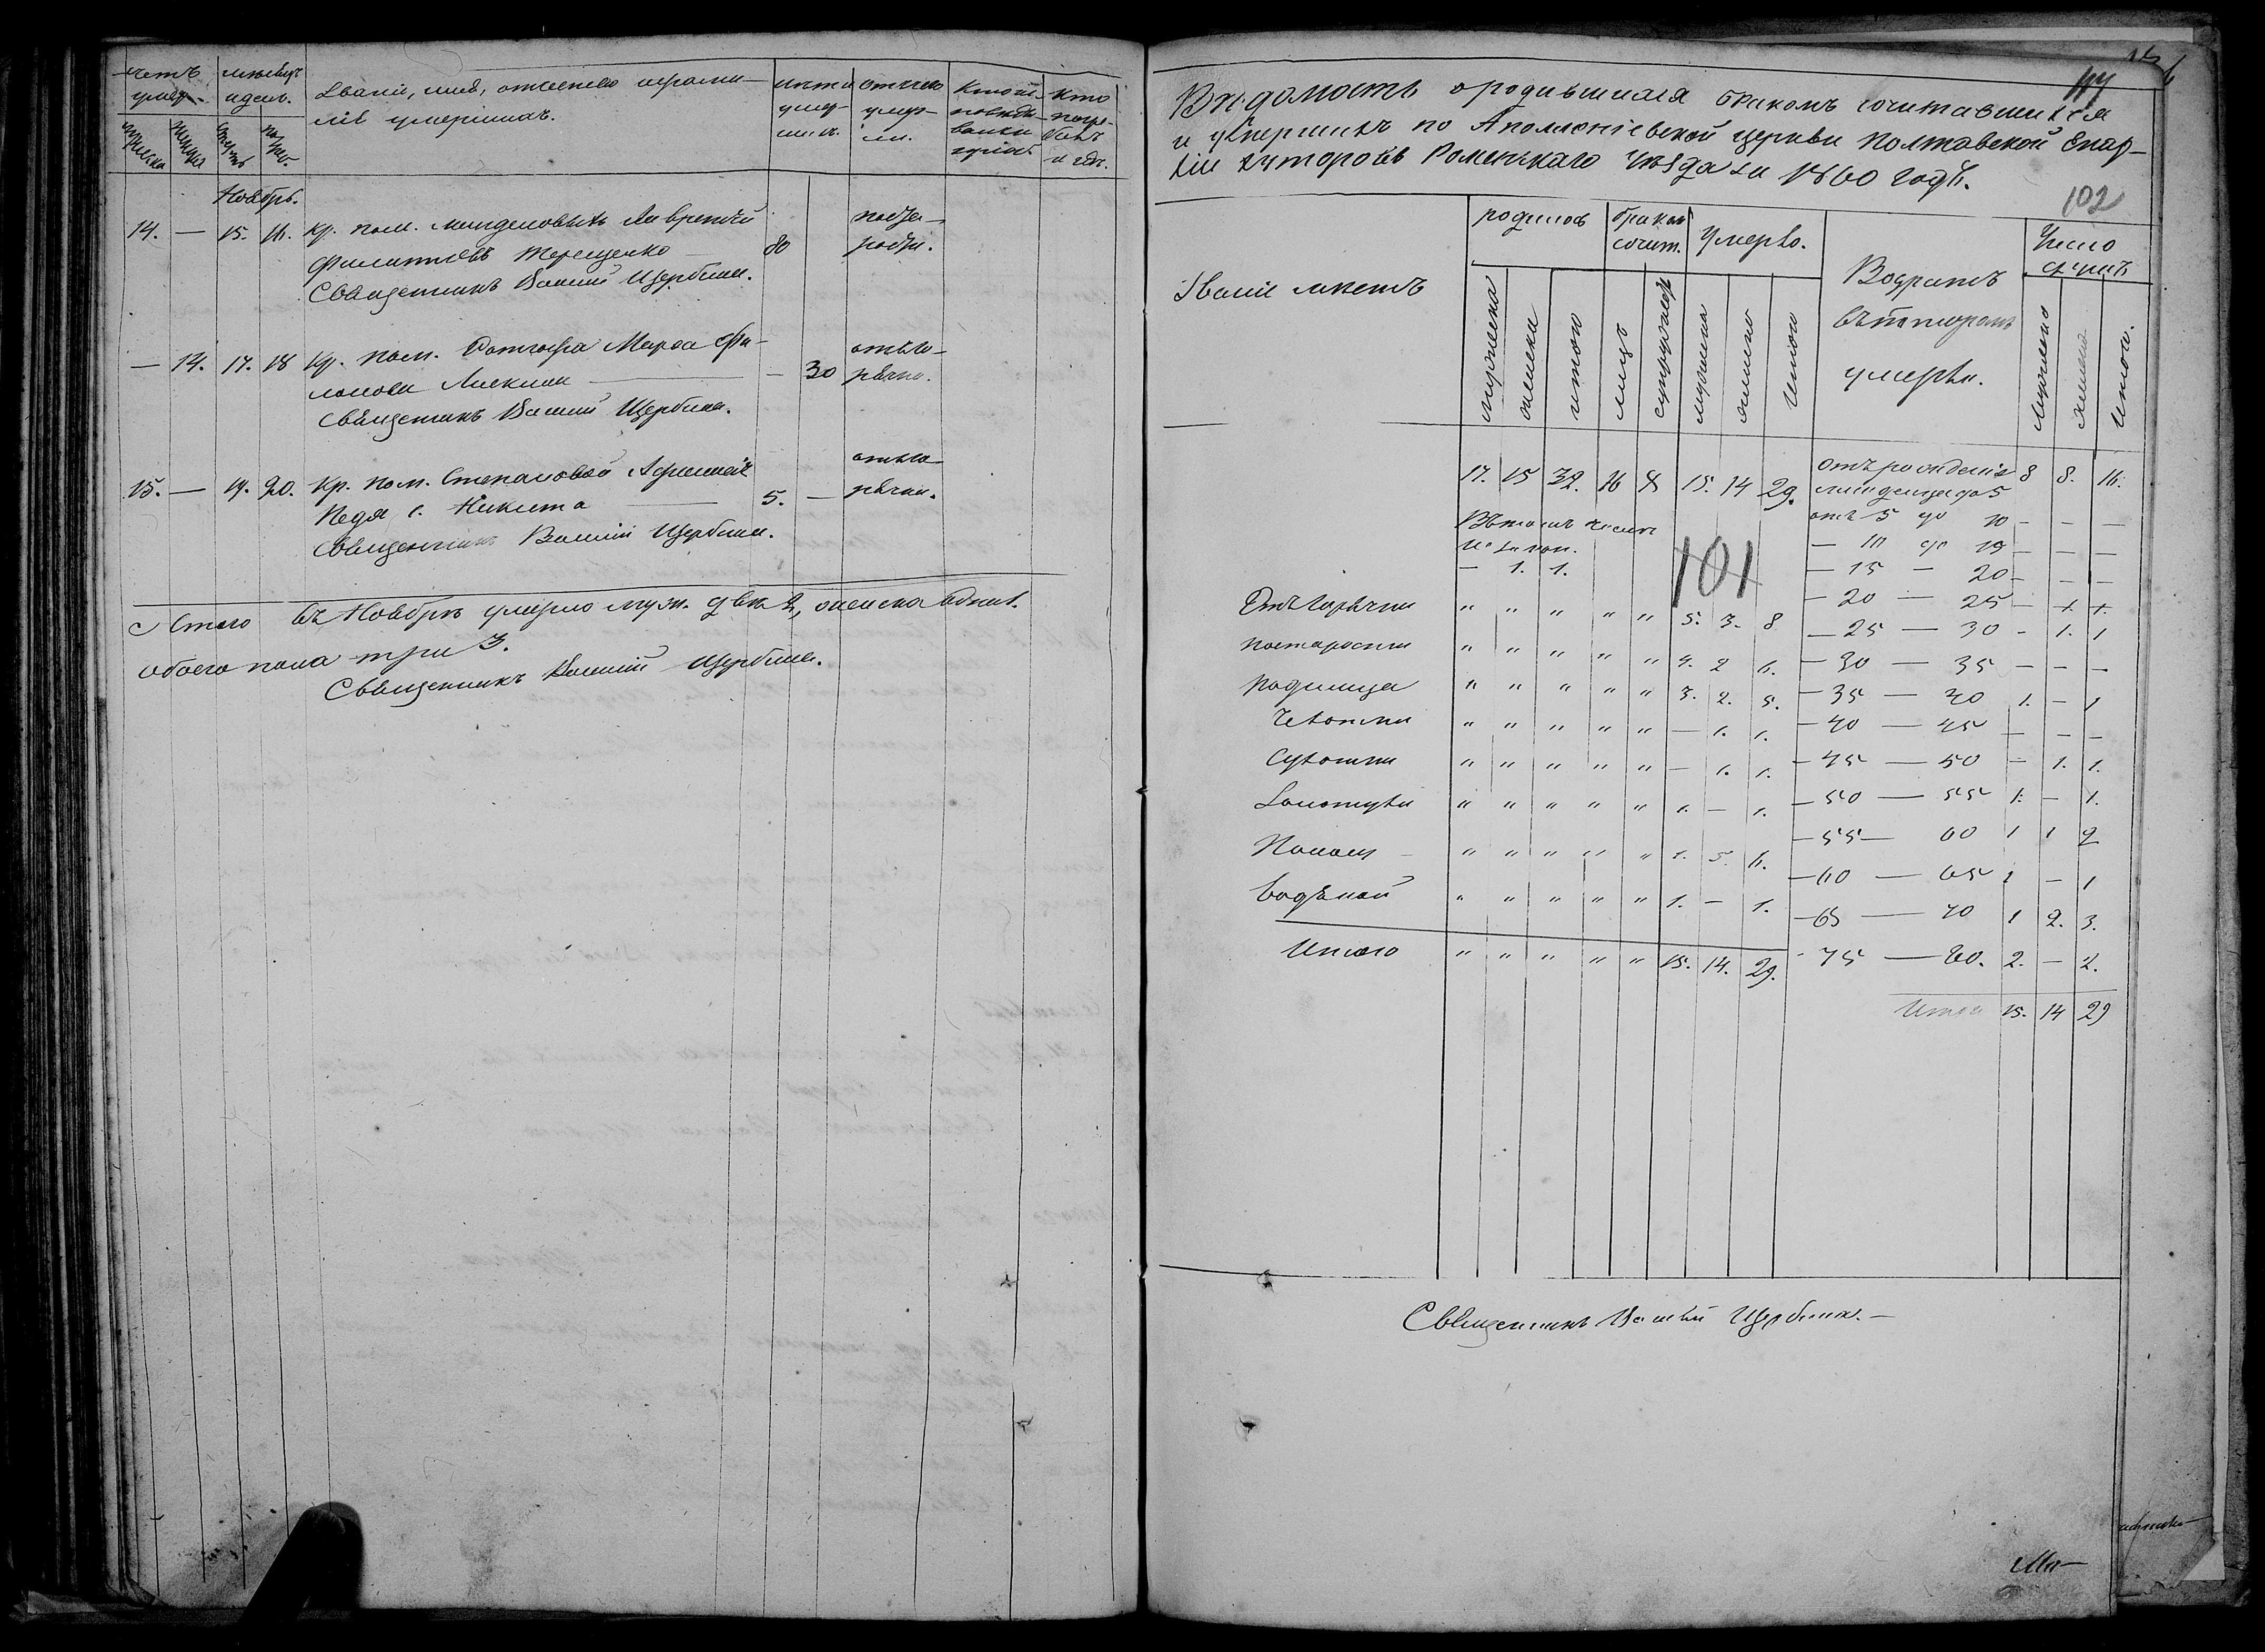 счетъ умер-
мѣсяцъ и день.
Званіе, имя, отчество и фами-
лія умершихъ.
лѣта умер-
шихъ.
отъ чего умер-
ли.
Кто ис-
повѣды-
валъ
Кто погре-
балъ и гдѣ.
Ноябрь.
14. — 15. 16. Кр. пом. Лаврентій
Филипповъ Терещенко 80
Священникъ Василій Щербина.
— 14. 17. 18 Кр. пом. Марѳа Фи-
лонова — 30 отъ го-
рячки.
Священникъ Василій Щербина.
15. — 19. 20. Кр. пом. Степановой
Никита 5. — отъ го-
рячки.
Священникъ Василій Щербина.
Итого въ Ноябрѣ умерло муж. два 2, женска одна 1.
обоего пола три 3.
Священникъ Василій Щербина.
102
Вѣдомость о родившихся бракомъ сочитавшихся
и умершихъ по Аполлоніевской церкви Полтавской Епар-
хіи хуторовъ Роменскаго Уѣзда за 1860 годъ.
Званіе мѣстъ
родилось
бракомъ сочит.
Умерло.
Возрастъ
въ которомъ
умерли.
Число
мужеска женска итого лицъ супружествъ мужеска женско Итого мужеска женска Итого.
17. 15 32. 16 8 15. 14 29. отъ рожденія
младенца до 5 8 8. 16.
Въ томъ числѣ отъ 5 до 10 — — —
незакон. — 10 до 15 — — —
— 1. 1. — 15 — 20 — — —
101
— 20 — 25 — 1. 1.
Отъ горячки " " " " " 5. 3. 8 — 25 — 30 — 1. 1
по старости " " " " " 4. 2 6. — 30 — 35 — — —
родимца " " " " " 3. 2. 5. — 35 — 40 1. — 1
Чахотки " " " " " — 1. 1. — 40 — 45 — — —
Сухотки " " " " " — 1. 1. — 45 — 50 — 1. 1.
Золотухи " " " " " 1. — 1. — 50 — 55 1. — 1.
— 55 — 60 1 1 2
Поносу " " " " " 1. 5. 6. — 60 — 65 1 — 1
Водяной " " " " " 1. — 1. — 65 — 70 1 2. 3.
Итого " " " " " 15. 14. 29. — 75 — 80. 2. — 2.
Итого 15. 14 29
Священникъ Василій Щербина.